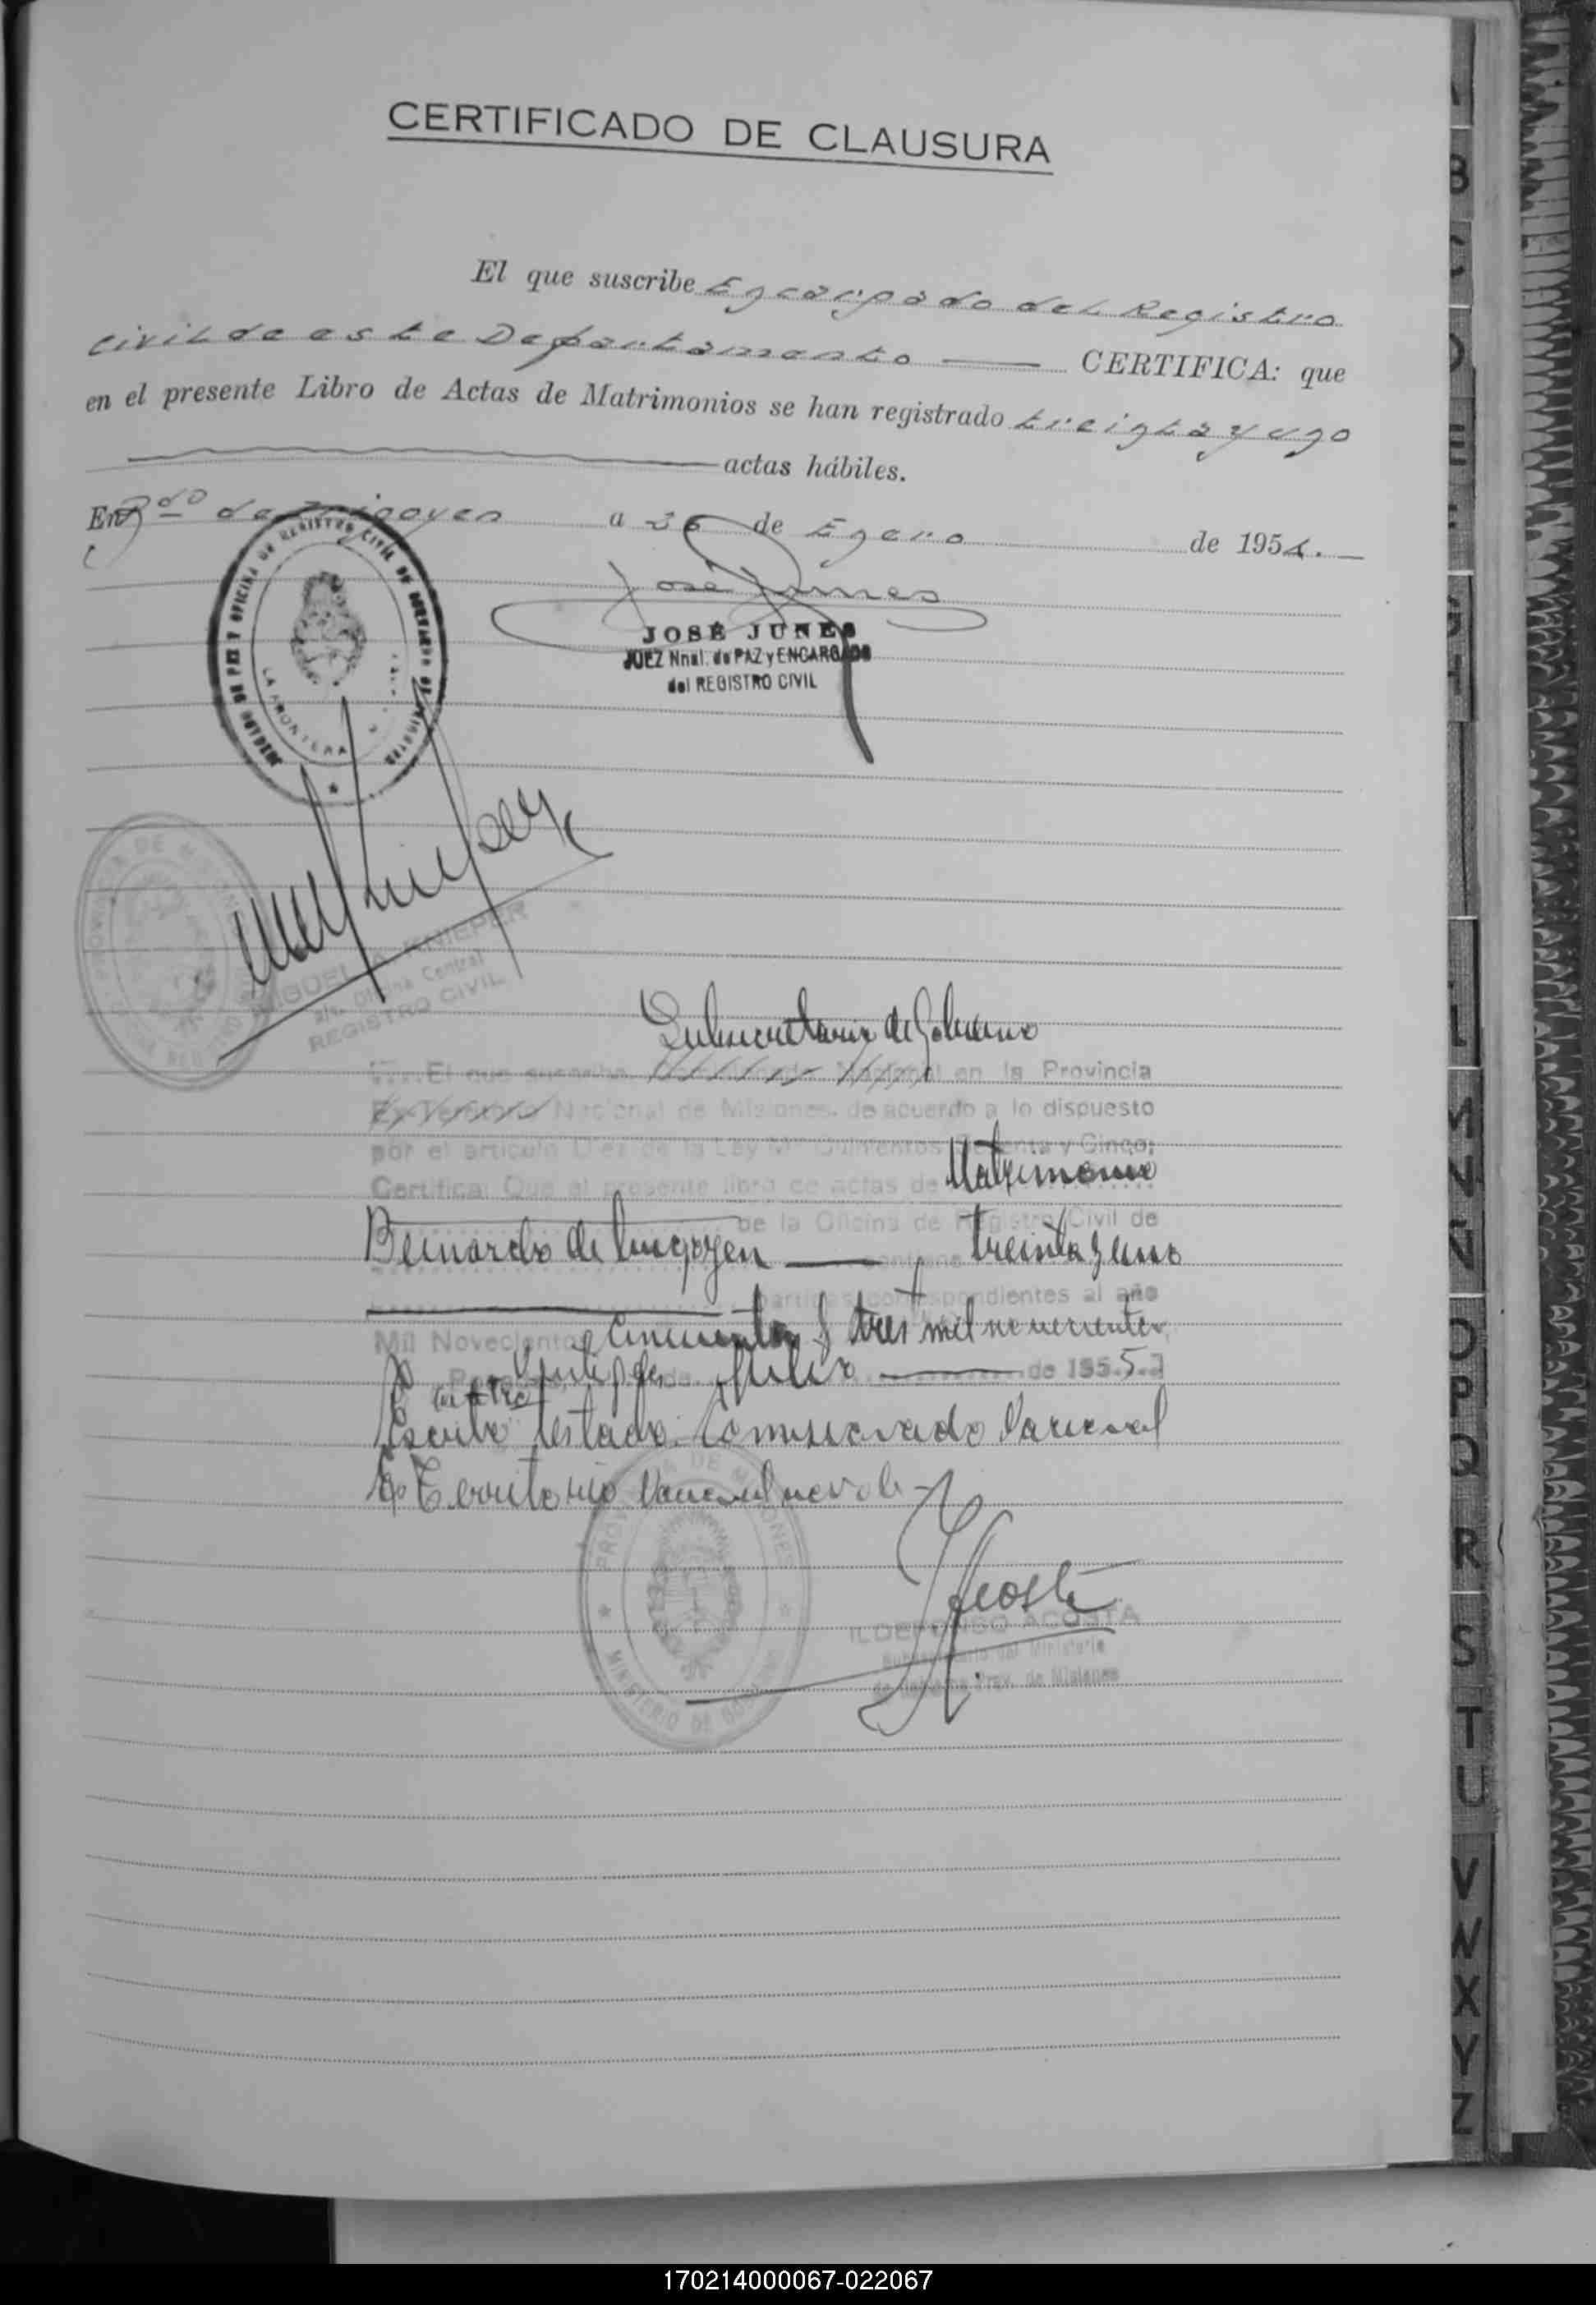 CERTIFICADO DE CLAUSURA
El que suscribe Encargado del Registro
civil de este Departamento — CERTIFICA: que
en el presente Libro de Actas de Matrimonios se han registrado treinta y uno
actas hábiles.
En Bdo de Irigoyen a 26 de Enero de 1954.
José Junes
JOSÉ JUNES
JUEZ Nnal. de PAZ y ENCARGADO
del REGISTRO CIVIL
LA FRONTERA
Oficina Central
REGISTRO CIVIL
Subsecretario de Gobierno
El que suscribe Nacional en la Provincia
Ex-Territorio Nacional de Misiones, de acuerdo a lo dispuesto
por el artículo Diez de la Ley Nº Quinientos Setenta y Cinco;
Certifica: Que el presente libro de actas de Matrimonio
de la Oficina de Registro Civil de
Bernardo de Irigoyen — contiene treinta y uno
partidas correspondientes al año
Mil Novecientos cincuenta y tres mil novecientos
de 1955.
cuatro
testado: Comisionado Nacional
Ex Territorio Nacional no vale
PROVINCIA DE MISIONES
MINISTERIO DE GOBIERNO
Acosta
ILDEFONSO ACOSTA
Subsecretario del Ministerio
de Gobierno Prov. de Misiones
B
C
D
E
H
M
N
Ñ
O
P
Q
R
S
T
U
V
W
X
Y
Z
170214000067-022067